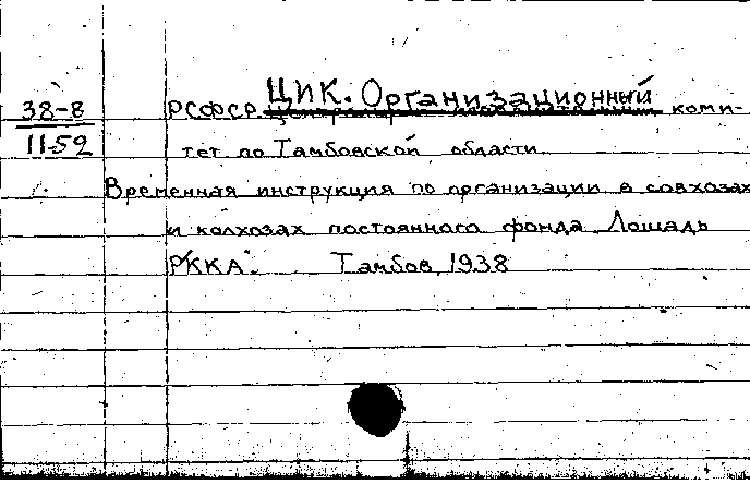 38-8
11-59
РСФСР ЦИК. Организационный коми-
тет по Тамбовской области
Временная инструкция по организации в совхозах
и колхозах постоянного фонда Лошадь
РККА". Тамбов, 1938